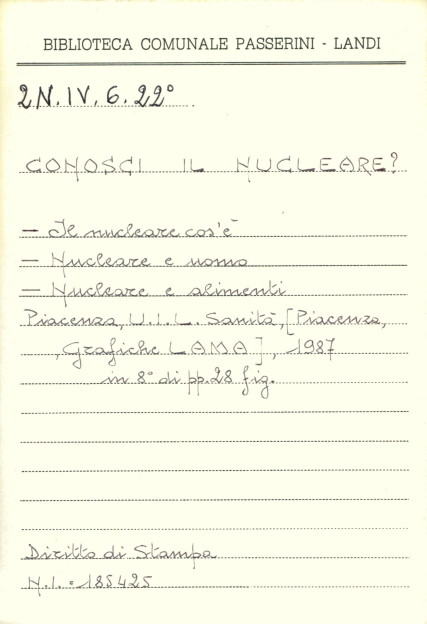 BIBLIOTECA COMUNALE PASSERINI - LANDI
2N.IV.6.22°
CONOSCI IL NUCLEARE?
– Il nucleare cos'è
– Nucleare e uomo
– Nucleare e alimenti
Piacenza, U.I.L. Sanità, [Piacenza,
, Grafiche LAMA], 1987
in 8° di pp. 28 fig.
Diritto di Stampa
N.I. = 185425